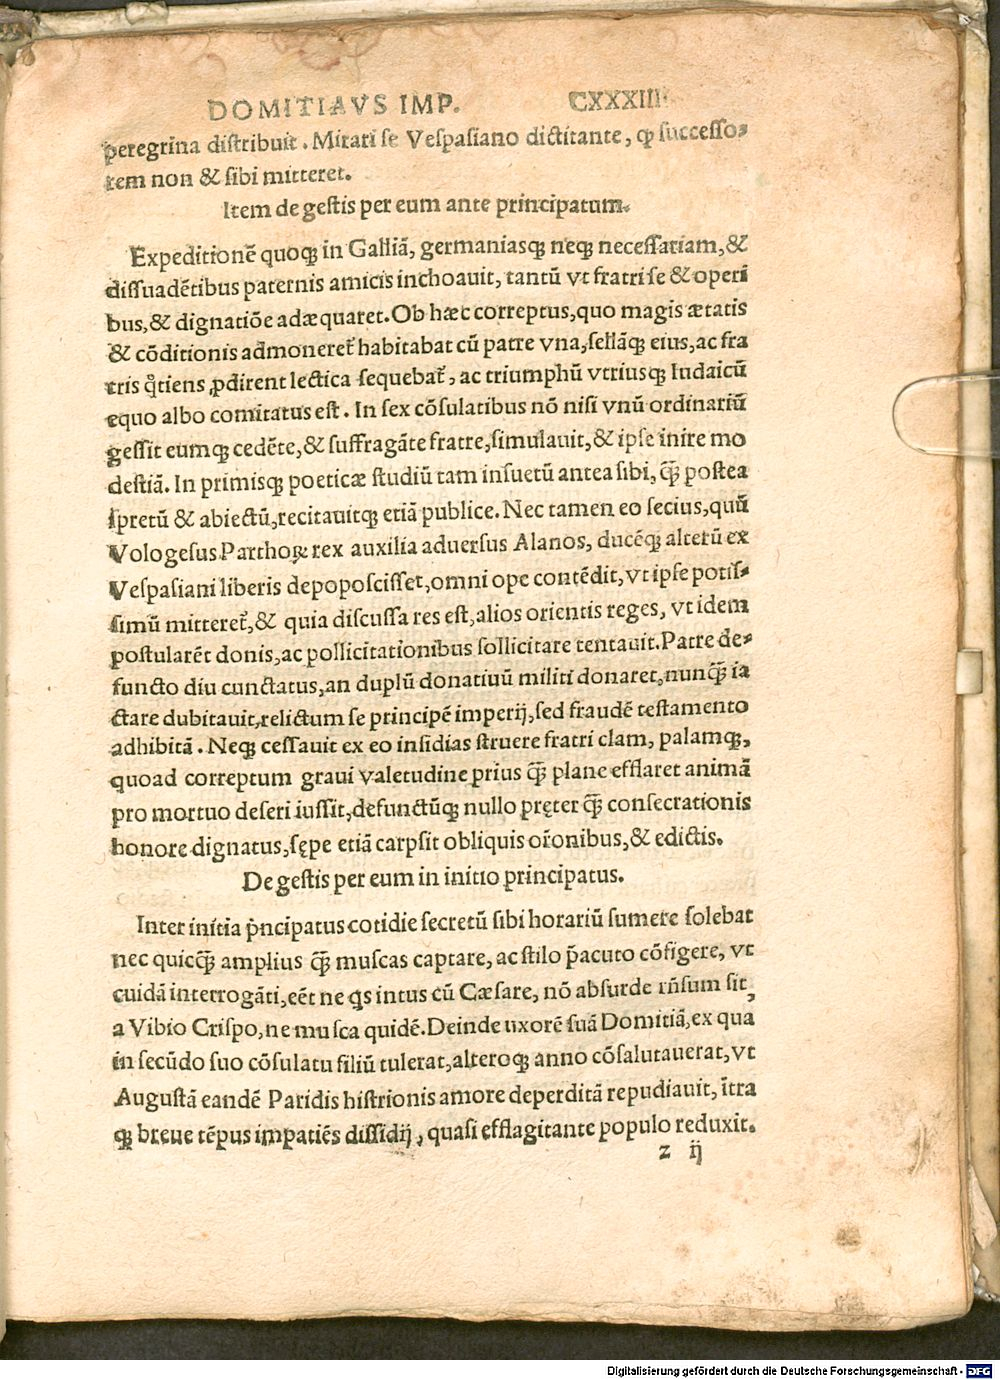 DOMITIAVS IMP. CXXXIIII
peregrina distribuit. Mirari se Vespasiano dictitante, ꝙ successo⸗
rem non & sibi mitteret.
Item de gestis per eum ante principatum.
Expeditionē quoqꝫ in Galliā, germaniasqꝫ neqꝫ necessariam, &
dissuadētibus paternis amicis inchoauit, tantū vt fratri se & operi
bus, & dignatiōe adæquaret. Ob hæc correptus, quo magis ætatis
& cōditionis admoneret᷑ habitabat cū patre vna, sellāqꝫ eius, ac fra
tris q̊tiens ꝓdirent lectica sequebat᷑, ac triumphū vtriusqꝫ Iudaicū
equo albo comitatus est. In sex cōsulatibus nō nisi vnū ordinariū
gessit eumqꝫ cedēte, & suffragāte fratre, simulauit, & ipse inire mo
destiā. In primisqꝫ poeticæ studiū tam insuetū antea sibi, q̄ꝫ postea
spretū & abiectū, recitauitqꝫ etiā publice. Nec tamen eo secius, quū
Vologesus Parthoꝝ rex auxilia aduersus Alanos, ducēqꝫ alterū ex
Vespasiani liberis depoposcisset, omni ope contēdit, vt ipse potis⸗
simū mitteret᷑, & quia discussa res est, alios orientis reges, vt idem
postularēt donis, ac pollicitationibus sollicitare tentauit. Patre de⸗
functo diu cunctatus, an duplū donatiuū militi donaret, nunq̄ꝫ ia
ctare dubitauit, relictum se principē imperij, sed fraudē testamento
adhibitā. Neqꝫ cessauit ex eo insidias struere fratri clam, palamqꝫ,
quoad correptum graui valetudine prius q̄ꝫ plane efflaret animā
pro mortuo deseri iussit, defunctūqꝫ nullo pręter q̄ꝫ consecrationis
honore dignatus, sępe etiā carpsit obliquis or̄onibus, & edictis.
De gestis per eum in initio principatus.
Inter initia pⁱncipatus cotidie secretū sibi horariū sumere solebat
nec quicq̄ꝫ amplius q̄ꝫ muscas captare, ac stilo p̄acuto cōfigere, vt
cuidā interrogāti, eēt ne qͥs intus cū Cæsare, nō absurde rn̄sum sit,
a Vibio Crispo, ne musca quidē. Deinde uxorē suā Domitiā, ex qua
in secūdo suo cōsulatu filiū tulerat, alteroqꝫ anno cōsalutauerat, vt
Augustā eandē Paridis histrionis amore deperditā repudiauit, ītra
qꝫ breue tēpus impatiēs dissidij, quasi efflagitante populo reduxit.
z ij
Digitalisierung gefördert durch die Deutsche Forschungsgemeinschaft - DFG